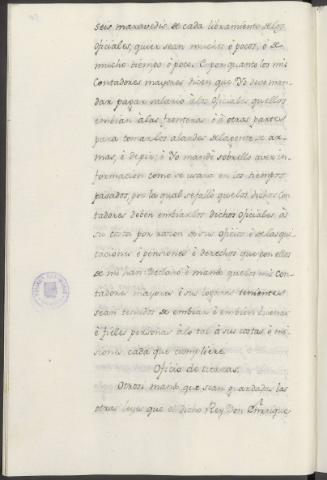 seis maravedis de cada libramiento de los
Oficiales, quier sean muchos ó pocos, ó de
mucho tiempo ó poco. E por quanto los mis
Contadores mayores dicen que Yo devo man-
dar pagar salario á los Oficiales que ellos
embian á las fronteras ó á otras partes
para tomar los alardes de la gente de ar-
mas, é de pie; é Yo mandé sobrello aver in-
formacion como se usara en los tiempos
pasados, por la qual se falló que los dichos Con-
tadores deben embiar los dichos Oficiales á
su costa por razon de sus oficios é de las qui-
taciones é pensiones é derechos que con ellos
de mi han: Declaro é mando que los mis con-
tadores mayores é sus logares tenientes
sean tenudos de embiar é embien buenas
é fieles personas á lo tal á sus costas é mi-
siones cada que cumpliere.
Oficio de tierras.
Otrosi mando que sean guardadas las
otras leyes que el dicho Rey Don Enrique